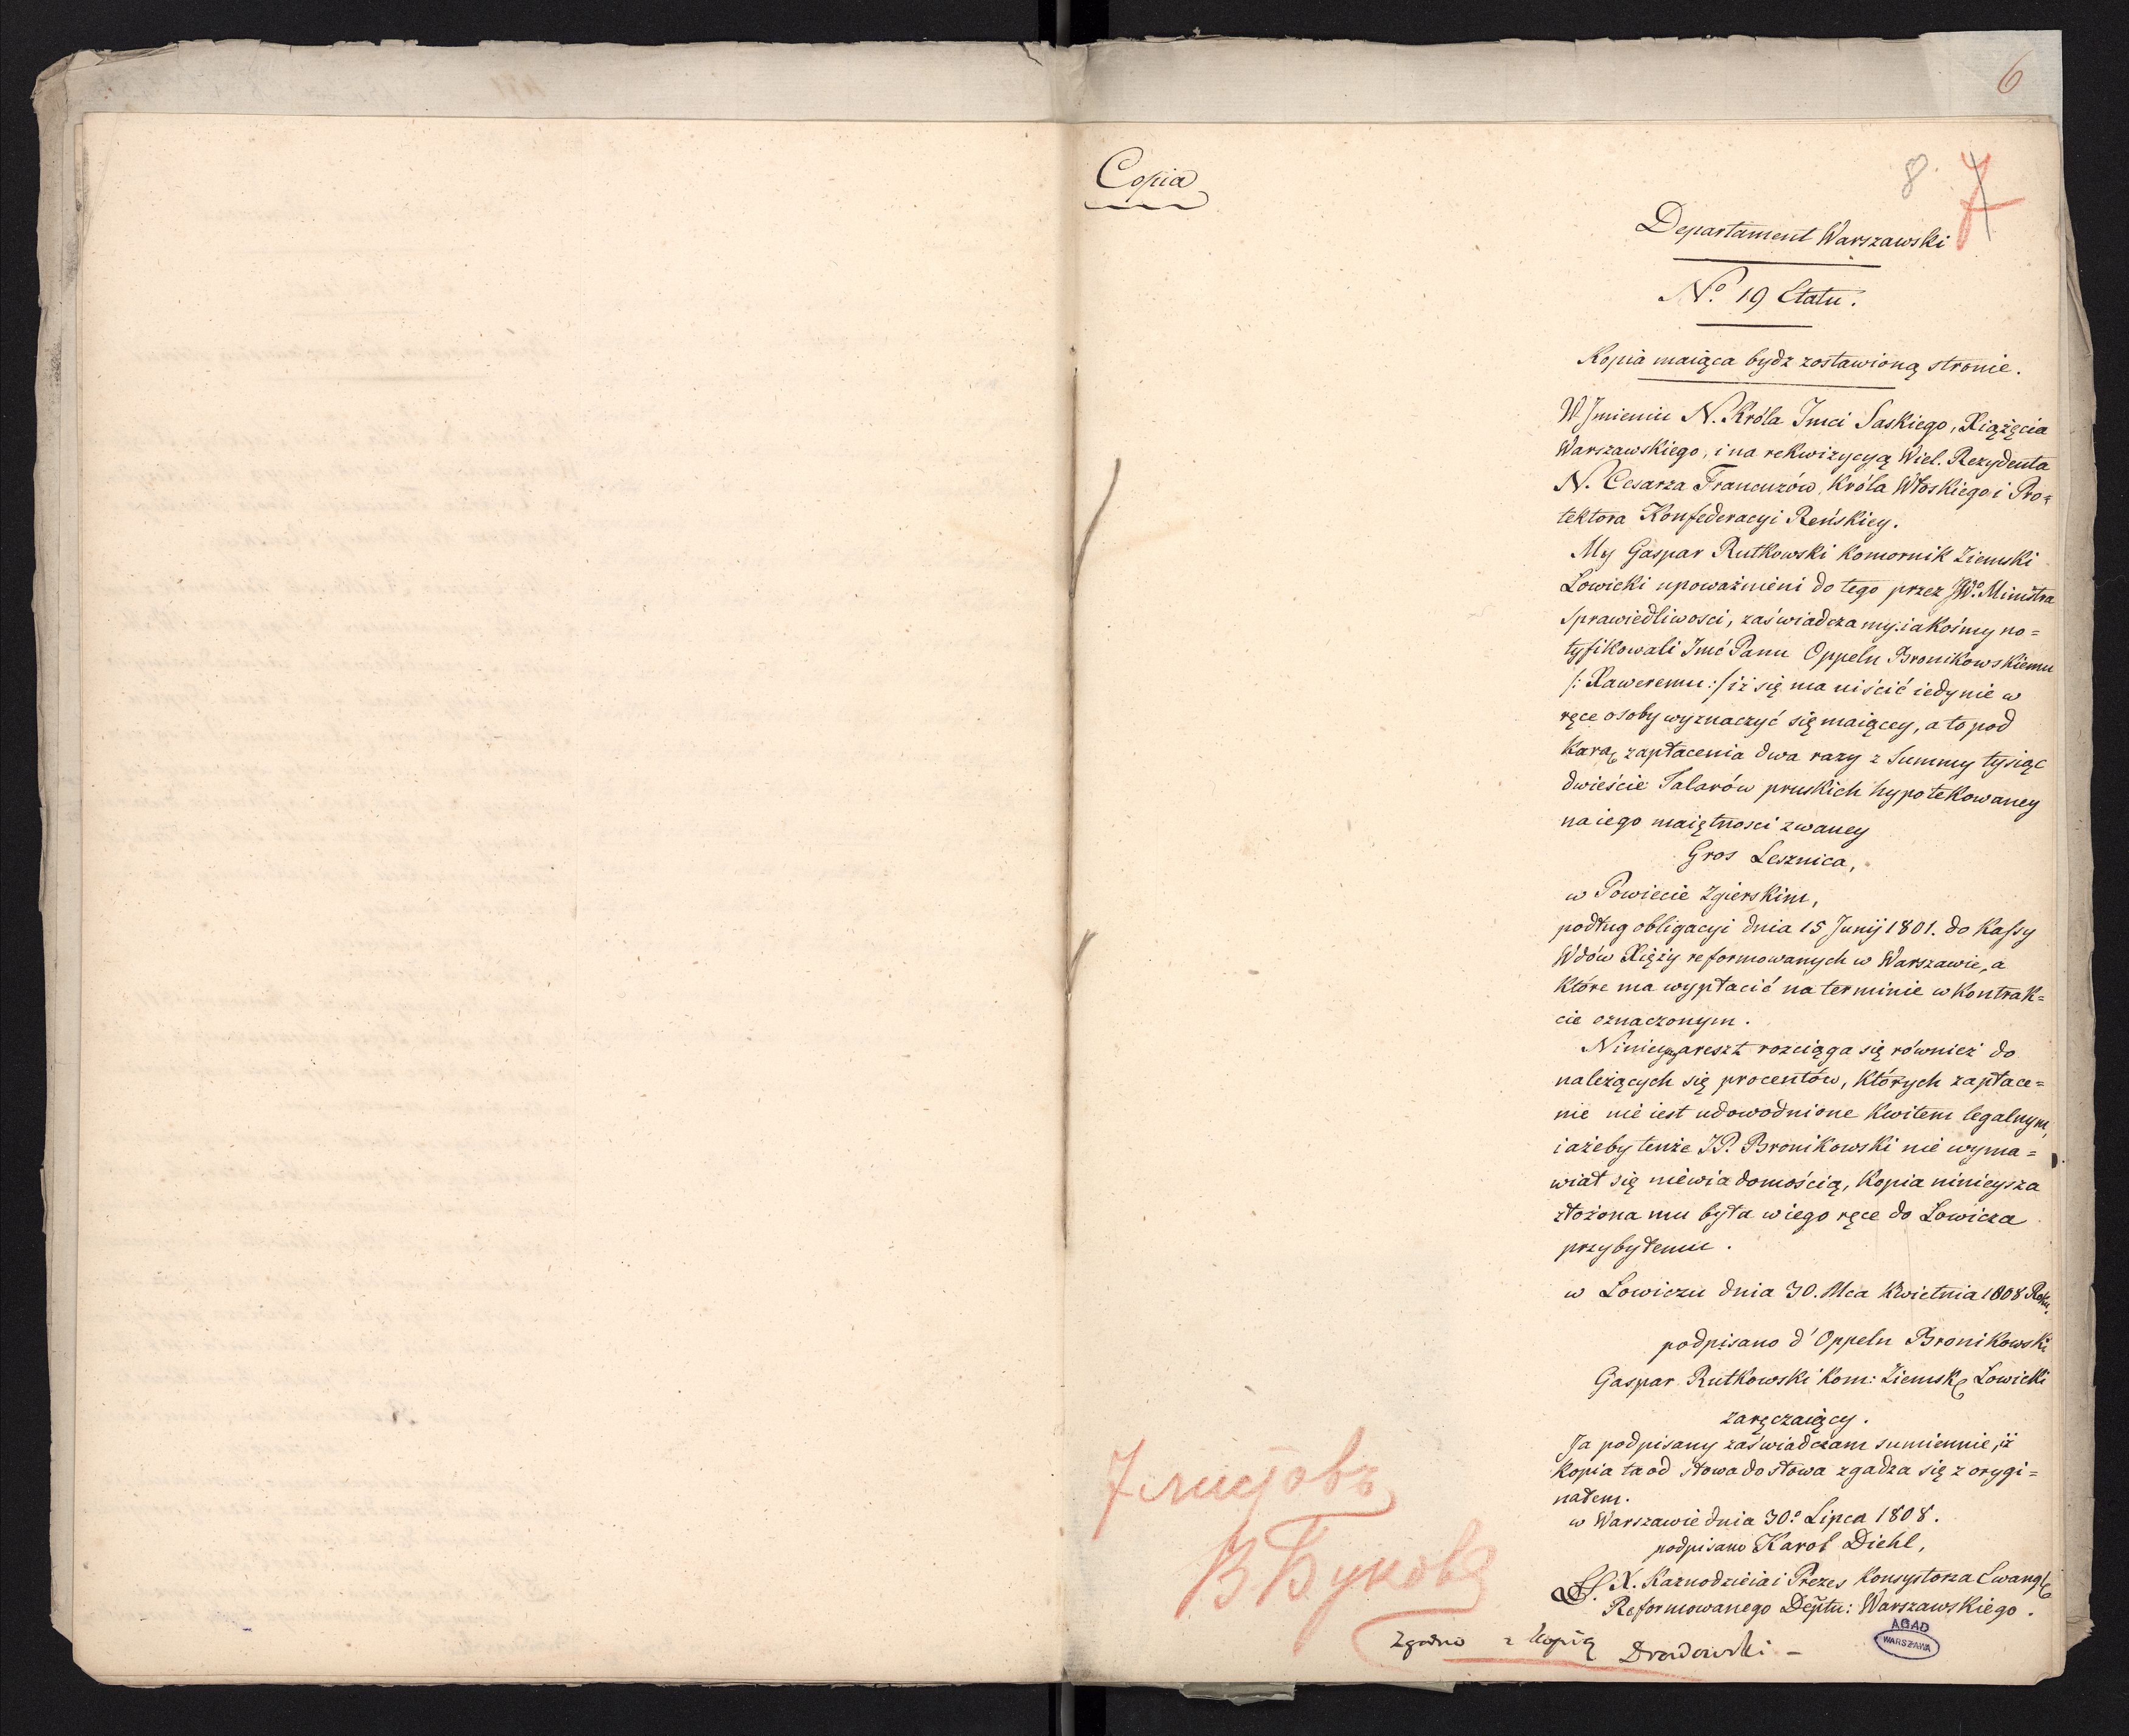 6
Copia
8. 7
Departament Warszawski
No. 19 Etatu.
Kopia maiąca bydź zostawioną stronie.
W Jmieniu N. Króla Jmci Saskiego, Xiążęcia
Warszawskiego, i na rekwizycyą Wiel. Rezydenta
N. Cesarza Francuzów, Króla Włoskiego i Pro=
tektora Konfederacyi Reńskiey.
My Gaspar Rutkowski Komornik Ziemski
Łowicki upoważnieni do tego przez JWo. Ministra
Sprawiedliwosci, zaświadczamy: iakośmy no=
tyfikowali Jmć Panu Oppeln Bronikowskiemu
/: Xaweremu :/ iż się ma uiścić iedynie w
ręce osoby wyznaczyć się maiącey, a to pod
Karą zapłacenia dwa razy z Summy tysiąc
dwieście Talarów pruskich hypotekowaney
na iego maiętnosci zwaney
Gros Lesznica,
w Powiecie Zgierskim,
podług obligacyi dnia 15 Junij 1801. do Kassy
Wdów Xięży reformowanych w Warszawie, a
Które ma wypłacić na terminie w Kontrak=
cie oznaczonym.
Ninieyszy areszt rozciąga się również do
należących się procentów, Których zapłace=
nie nie iest udowodnione Kwitem legalnym,
i ażeby tenże JP. Bronikowski nie wyma=
wiał się niewiadomością, Kopia ninieysza
złożona mu była w iego ręce do Łowicza
przybyłemu.
w Łowiczu dnia 30. Mca Kwietnia 1808 Roku.
podpisano d'Oppeln Bronikowski
Gaspar Rutkowski Kom: Ziemsk Łowicki
zaręczaiący.
Ja podpisany zaświadczam sumiennie, iż
Kopia ta od słowa do słowa zgadza się z orygi=
nałem.
w Warszawie dnia 30o. Lipca 1808.
podpisano Karol Diehl,
X. Kaznodzieia i Prezes Konsystorza Ewangl
Reformowanego Deptu: Warszawskiego.
7 листовъ
В Букова
Zgodno z Kopią
AGAD
WARSZAWA